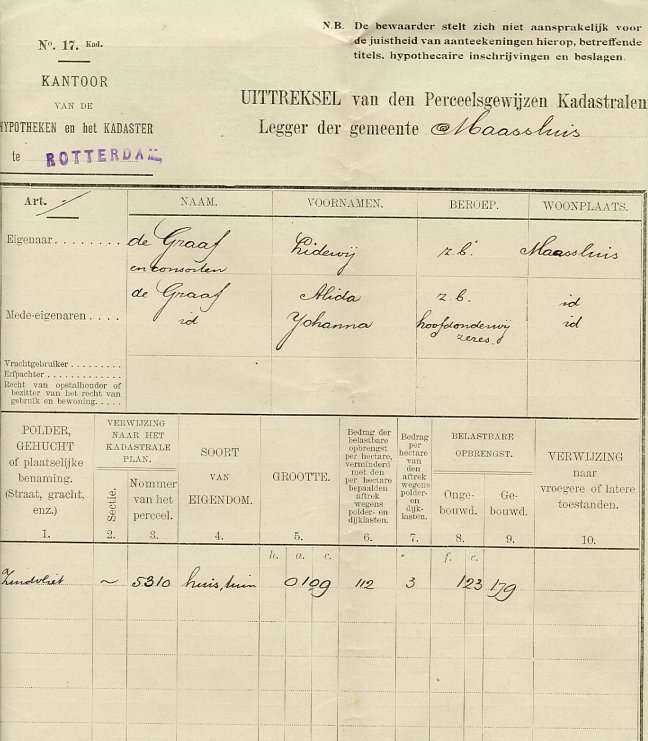 N.B. De bewaarder stelt zich niet aansprakelijk voor
de juistheid van aanteekeningen hierop, betreffende
titels, hypothecaire inschrijvingen en beslagen.
No. 17. Kad.
KANTOOR
VAN DE
HYPOTHEKEN en het KADASTER
te ROTTERDAM
UITTREKSEL van den Perceelsgewijzen Kadastralen
Legger der gemeente Maassluis
Art. NAAM. VOORNAMEN. BEROEP. WOONPLAATS.
Eigenaar de Graaf Lidewij z.b. Maassluis
en consorten
de Graaf Alida z.b. id
Mede-eigenaren id Johanna hoofdonderwij id
zeres.
Vruchtgebruiker
Erfpachter
Recht van opstalhouder of
bezitter van het recht van
gebruik en bewoning
POLDER,
GEHUCHT
of plaatselijke
benaming.
(Straat, gracht,
enz.)
VERWIJZING
NAAR HET
KADASTRALE
PLAN.
Sectie.
Nommer
van het
perceel.
SOORT
VAN
EIGENDOM.
GROOTTE.
Bedrag der
belastbare
opbrengst
per hectare,
verminderd
met den
per hectare
bepaalden
aftrek
wegens
polder- en
dijklasten.
Bedrag
per
hectare
van den
aftrek
wegens
polder-
en
dijk-
lasten.
BELASTBARE
OPBRENGST.
Onge-
bouwd.
Ge-
bouwd.
VERWIJZING
naar
vroegere of latere
toestanden.
1. 2. 3. 4. 5. 6. 7. 8. 9. 10.
h. a. c. f. c.
5310 huis, tuin 0109 112 3 123 179